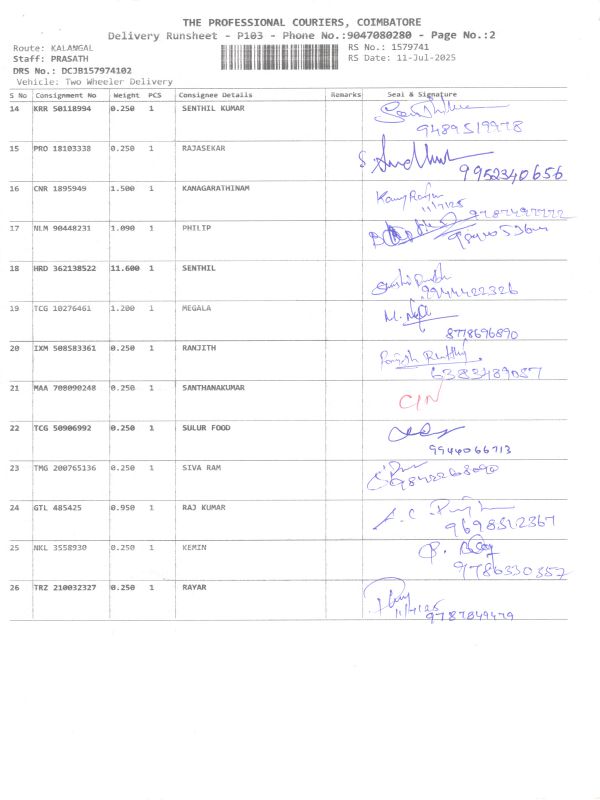 THE PROFESSIONAL COURIERS, COIMBATORE
Delivery Runsheet - P103 - Phone No.:9047080280 - Page No.:2
Route: KALANGAL RS No.: 1579741
Staff: PRASATH RS Date: 11-Jul-2025
DRS No.: DCJB157974102
Vehicle: Two Wheeler Delivery
S No Consignment No Weight PCS Consignee Details Remarks Seal & Signature
14 KRR 50118994 0.250 1 SENTHIL KUMAR
9489519978
15 PRO 18103338 0.250 1 RAJASEKAR
9952340656
16 CNR 1895949 1.500 1 KANAGARATHINAM
11/7/25
17 NLM 90448231 1.090 1 PHILIP
18 HRD 362138522 11.600 1 SENTHIL
9944422326
19 TCG 10276461 1.200 1 MEGALA
8778696890
20 IXM 508583361 0.250 1 RANJITH
6383489087
21 MAA 708090248 0.250 1 SANTHANAKUMAR
C/N
22 TCG 50906992 0.250 1 SULUR FOOD
9944066713
23 TMG 200765136 0.250 1 SIVA RAM
9842268090
24 GTL 485425 0.950 1 RAJ KUMAR
9698512367
25 NKL 3558930 0.250 1 KEMIN
9786330357
26 TRZ 210032327 0.250 1 RAYAR
9787849479